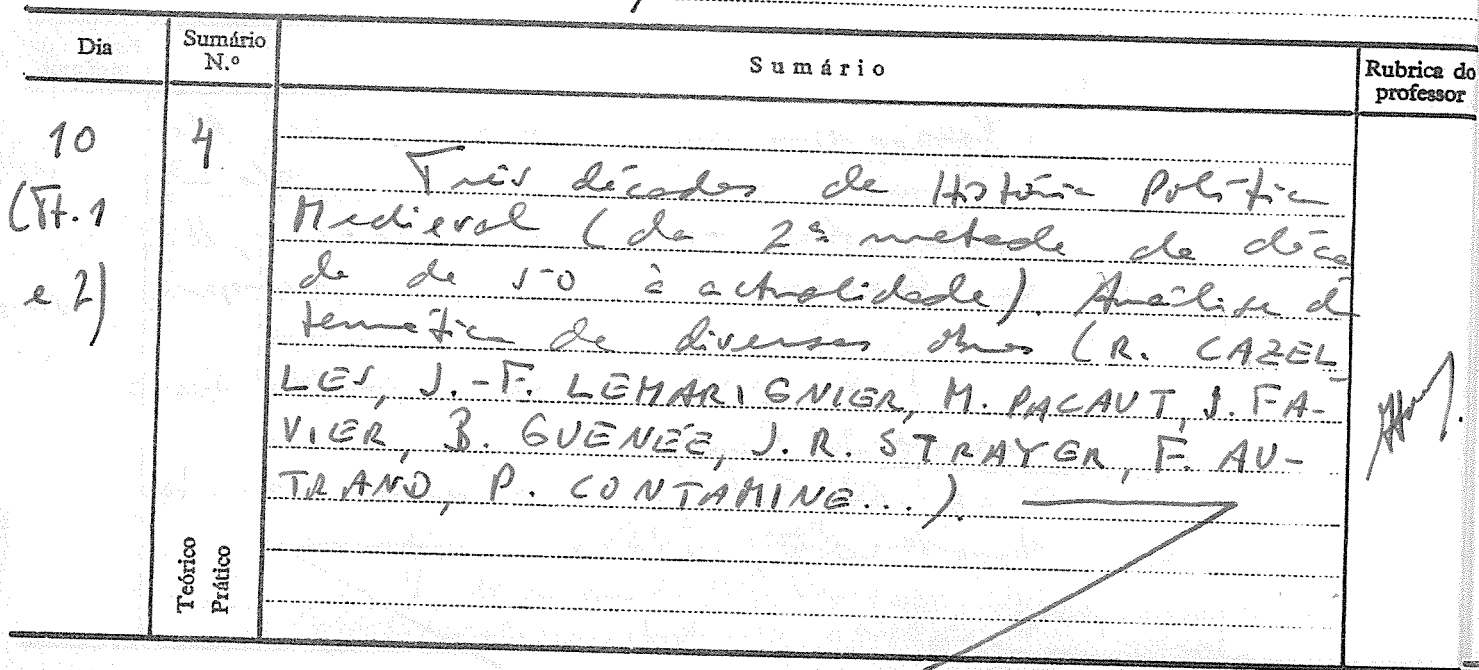 Dia
Sumário N.º
Sumário
Rubrica do professor
10
(Tt. 1
e 2)
4
Três décadas de História Política
Medieval (da 2ª metade da déca
da de 50 à actualidade). Análise d
temática de diversas obras (R. CAZEL
LES, J.-F. LEMARIGNIER, M. PACAUT, J. FA-
VIER, B. GUENÉE, J. R. STRAYER, F. AU-
TRAND, P. CONTAMINE...).
Teórico
Prático